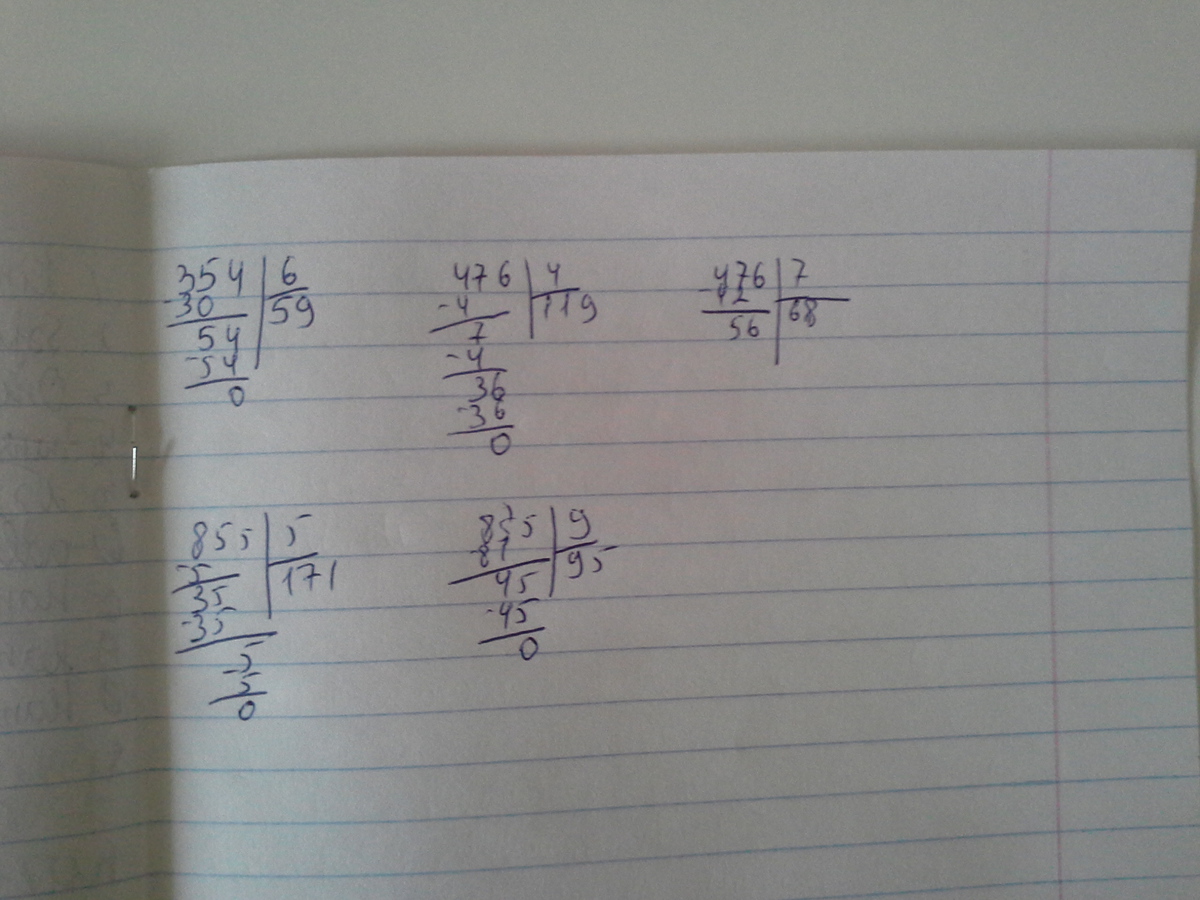 354 6
-30 59
54
-54
0
476 4
-4 119
7
-4
36
-36
0
-476 7
42 68
56
855 5
-5 171
35
-35
5
-5
0
855 9
-81 95
45
-45
0